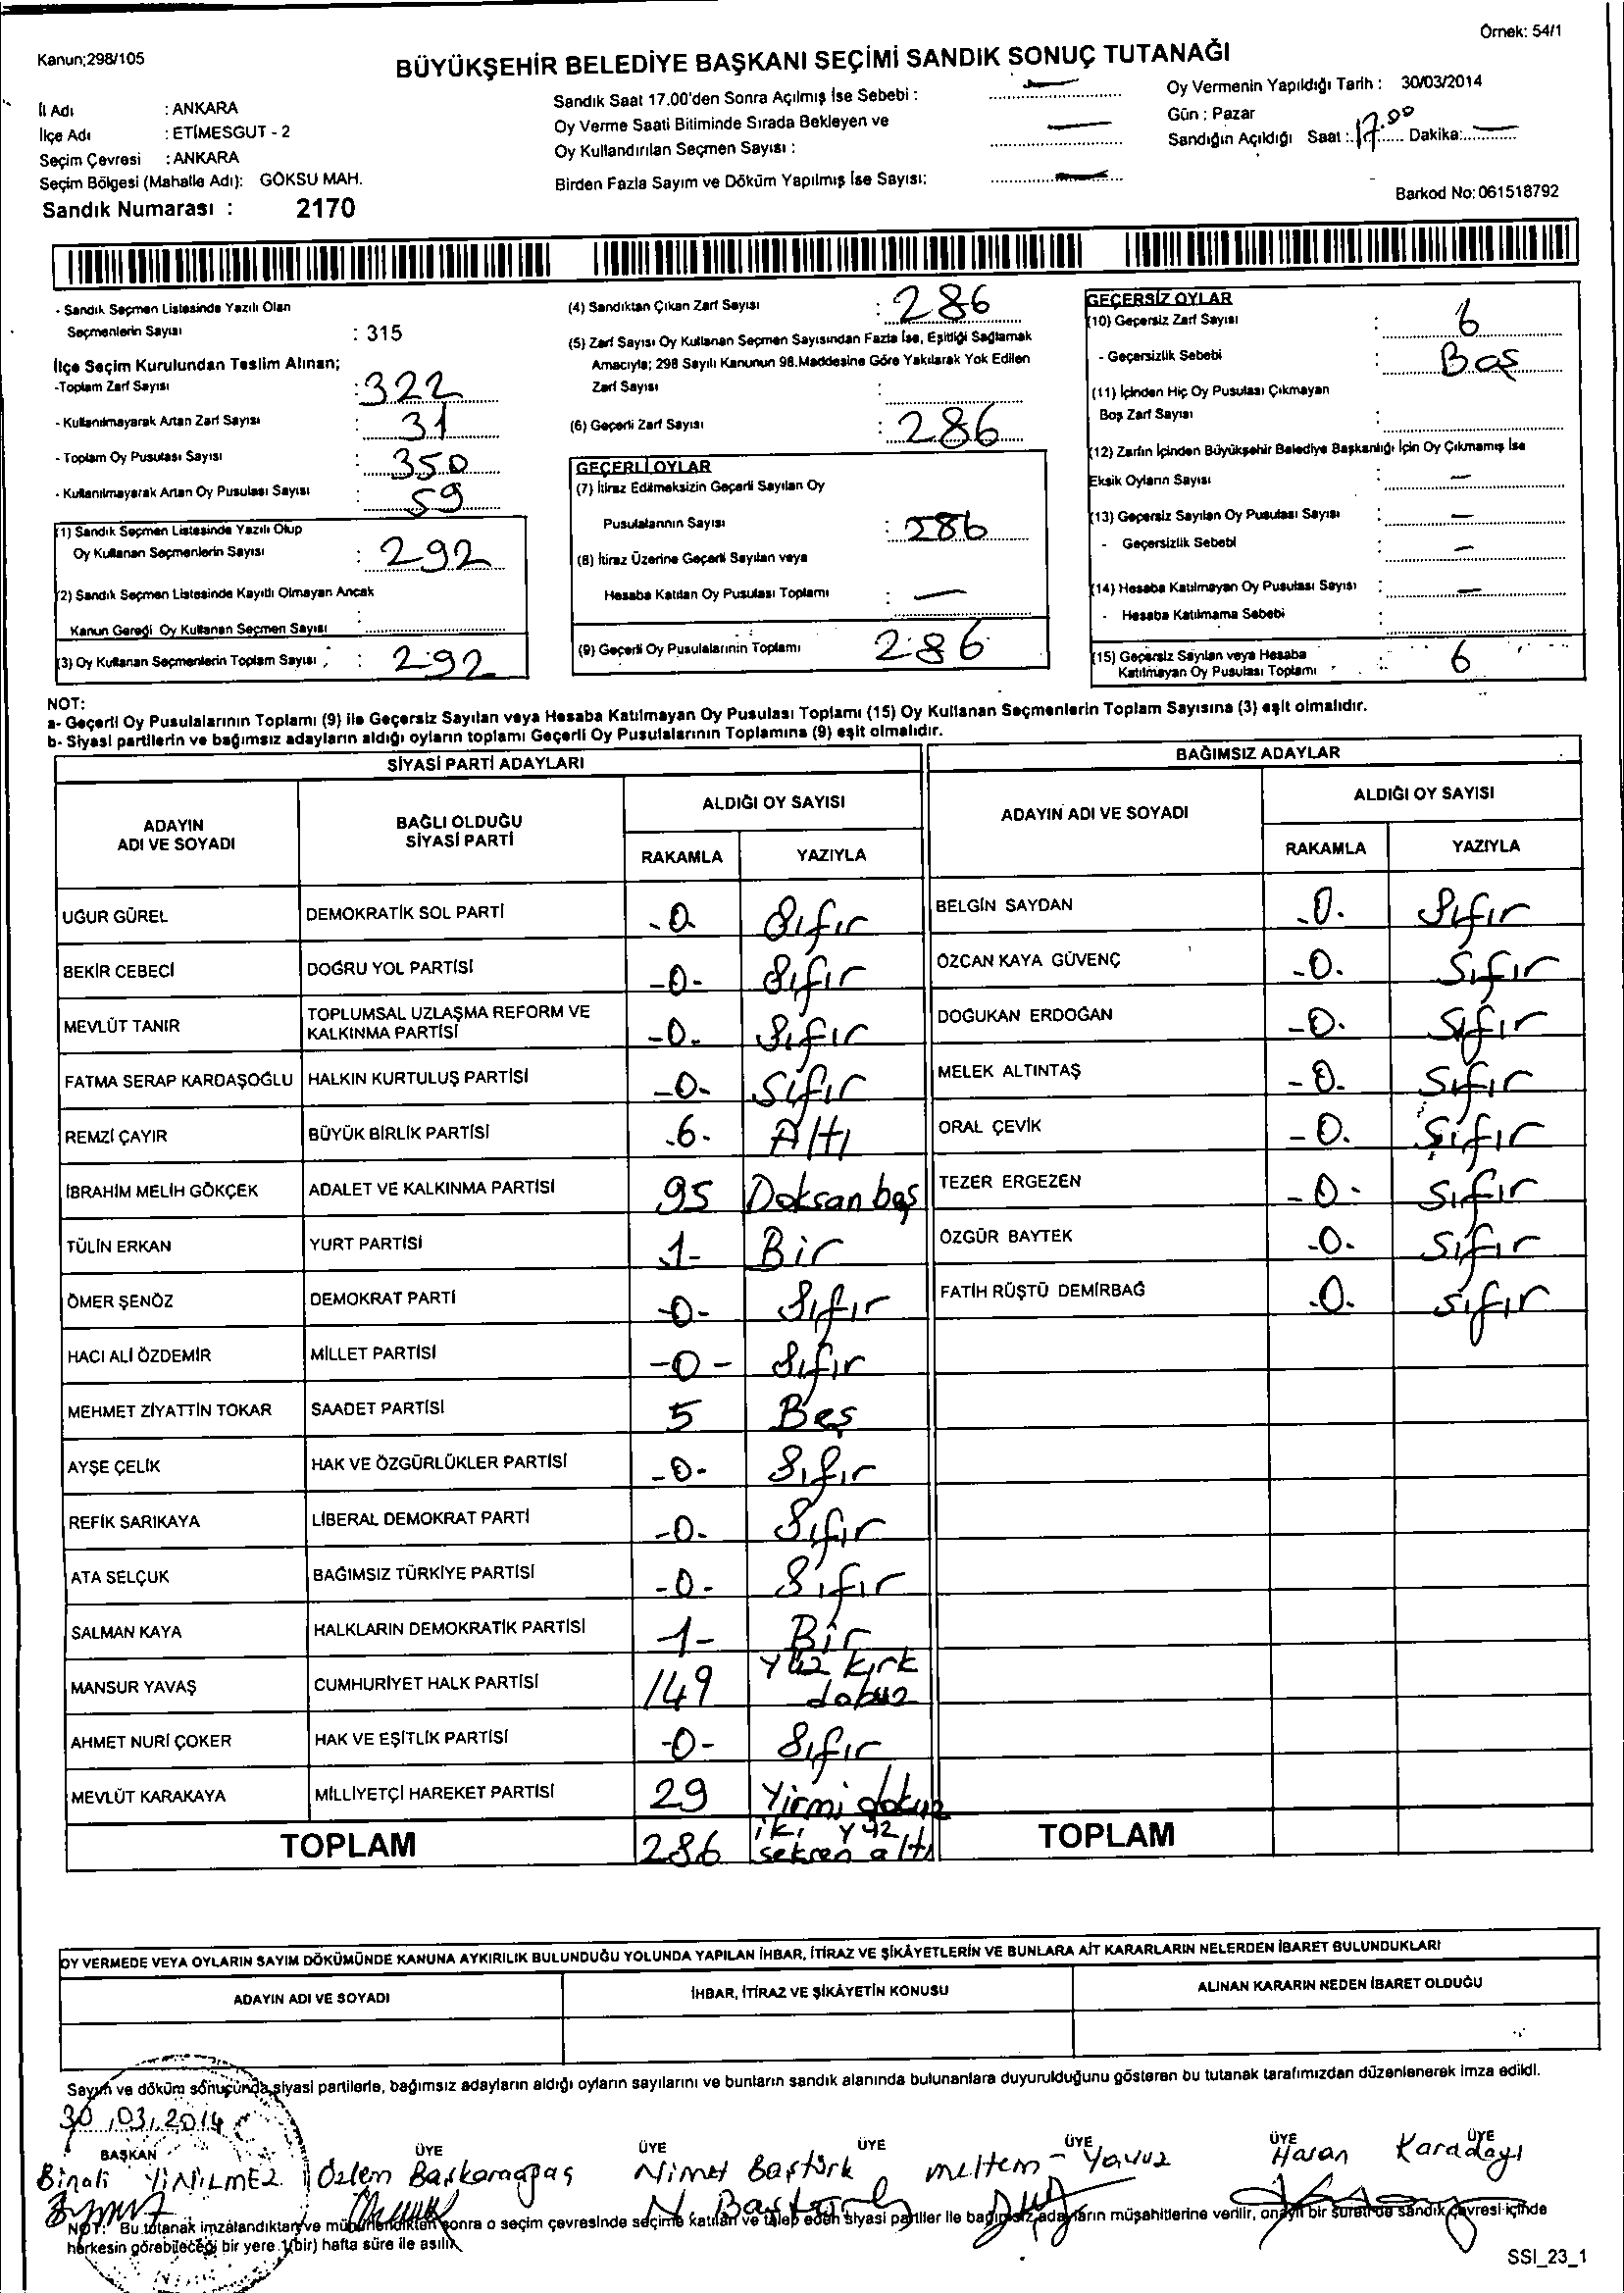 Örnek: 54/1
Kanun;298/105
BÜYÜKŞEHİR BELEDİYE BAŞKANI SEÇİMİ SANDIK SONUÇ TUTANAĞI
İl Adı : ANKARA
İlçe Adı : ETİMESGUT - 2
Seçim Çevresi : ANKARA
Seçim Bölgesi (Mahalle Adı): GÖKSU MAH.
Sandık Numarası : 2170
Sandık Saat 17.00'den Sonra Açılmış İse Sebebi :
Oy Verme Saati Bitiminde Sırada Bekleyen ve
Oy Kullandırılan Seçmen Sayısı :
Birden Fazla Sayım ve Döküm Yapılmış İse Sayısı:
Oy Vermenin Yapıldığı Tarih : 30/03/2014
Gün : Pazar
Sandığın Açıldığı Saat : 17.00 Dakika:
Barkod No: 061518792
- Sandık Seçmen Listesinde Yazılı Olan
Seçmenlerin Sayısı : 315
İlçe Seçim Kurulundan Teslim Alınan;
-Toplam Zarf Sayısı : 322
- Kullanılmayarak Artan Zarf Sayısı : 31
- Toplam Oy Pusulası Sayısı : 350
- Kullanılmayarak Artan Oy Pusulası Sayısı : 59
(1) Sandık Seçmen Listesinde Yazılı Olup
Oy Kullanan Seçmenlerin Sayısı : 292
(2) Sandık Seçmen Listesinde Kayıtlı Olmayan Ancak
Kanun Gereği Oy Kullanan Seçmen Sayısı :
(3) Oy Kullanan Seçmenlerin Toplam Sayısı : 292
(4) Sandıktan Çıkan Zarf Sayısı : 286
(5) Zarf Sayısı Oy Kullanan Seçmen Sayısından Fazla İse, Eşitliği Sağlamak
Amacıyla; 298 Sayılı Kanunun 98.Maddesine Göre Yakılarak Yok Edilen
Zarf Sayısı :
(6) Geçerli Zarf Sayısı : 286
GEÇERLİ OYLAR
(7) İtiraz Edilmeksizin Geçerli Sayılan Oy
Pusulalarının Sayısı : 286
(8) İtiraz Üzerine Geçerli Sayılan veya
Hesaba Katılan Oy Pusulası Toplamı : —
(9) Geçerli Oy Pusulalarının Toplamı : 286
GEÇERSİZ OYLAR
(10) Geçersiz Zarf Sayısı : 6
- Geçersizlik Sebebi : Boş
(11) İçinden Hiç Oy Pusulası Çıkmayan
Boş Zarf Sayısı :
(12) Zarfın İçinden Büyükşehir Belediye Başkanlığı İçin Oy Çıkmamış İse
Eksik Oyların Sayısı : —
(13) Geçersiz Sayılan Oy Pusulası Sayısı : —
- Geçersizlik Sebebi : —
(14) Hesaba Katılmayan Oy Pusulası Sayısı : —
- Hesaba Katılmama Sebebi :
(15) Geçersiz Sayılan veya Hesaba
Katılmayan Oy Pusulası Toplamı : 6
NOT:
a- Geçerli Oy Pusulalarının Toplamı (9) ile Geçersiz Sayılan veya Hesaba Katılmayan Oy Pusulası Toplamı (15) Oy Kullanan Seçmenlerin Toplam Sayısına (3) eşit olmalıdır.
b- Siyasi partilerin ve bağımsız adayların aldığı oyların toplamı Geçerli Oy Pusulalarının Toplamına (9) eşit olmalıdır.
SİYASİ PARTİ ADAYLARI
ADAYIN ADI VE SOYADI BAĞLI OLDUĞU SİYASİ PARTİ ALDIĞI OY SAYISI
RAKAMLA YAZIYLA
UĞUR GÜREL DEMOKRATİK SOL PARTİ -0 Sıfır
BEKİR CEBECİ DOĞRU YOL PARTİSİ -0- Sıfır
MEVLÜT TANIR TOPLUMSAL UZLAŞMA REFORM VE KALKINMA PARTİSİ -0- Sıfır
FATMA SERAP KARDAŞOĞLU HALKIN KURTULUŞ PARTİSİ -0- Sıfır
REMZİ ÇAYIR BÜYÜK BİRLİK PARTİSİ -6- Altı
İBRAHİM MELİH GÖKÇEK ADALET VE KALKINMA PARTİSİ 95 Doksan beş
TÜLİN ERKAN YURT PARTİSİ -1- Bir
ÖMER ŞENÖZ DEMOKRAT PARTİ -0- Sıfır
HACI ALİ ÖZDEMİR MİLLET PARTİSİ -0- Sıfır
MEHMET ZİYATTİN TOKAR SAADET PARTİSİ 5 Beş
AYŞE ÇELİK HAK VE ÖZGÜRLÜKLER PARTİSİ -0- Sıfır
REFİK SARIKAYA LİBERAL DEMOKRAT PARTİ -0- Sıfır
ATA SELÇUK BAĞIMSIZ TÜRKİYE PARTİSİ -0- Sıfır
SALMAN KAYA HALKLARIN DEMOKRATİK PARTİSİ -1- Bir
MANSUR YAVAŞ CUMHURİYET HALK PARTİSİ 149 Yüz kırk dokuz
AHMET NURİ ÇOKER HAK VE EŞİTLİK PARTİSİ -0- Sıfır
MEVLÜT KARAKAYA MİLLİYETÇİ HAREKET PARTİSİ 29 Yirmi dokuz
TOPLAM 286 iki yüz seksen altı
BAĞIMSIZ ADAYLAR
ADAYIN ADI VE SOYADI ALDIĞI OY SAYISI
RAKAMLA YAZIYLA
BELGİN SAYDAN -0- Sıfır
ÖZCAN KAYA GÜVENÇ -0- Sıfır
DOĞUKAN ERDOĞAN -0- Sıfır
MELEK ALTINTAŞ -0- Sıfır
ORAL ÇEVİK -0- Sıfır
TEZER ERGEZEN -0- Sıfır
ÖZGÜR BAYTEK -0- Sıfır
FATİH RÜŞTÜ DEMİRBAĞ -0- Sıfır
TOPLAM
OY VERMEDE VEYA OYLARIN SAYIM DÖKÜMÜNDE KANUNA AYKIRILIK BULUNDUĞU YOLUNDA YAPILAN İHBAR, İTİRAZ VE ŞİKÂYETLERİN VE BUNLARA AİT KARARLARIN NELERDEN İBARET BULUNDUKLARI
ADAYIN ADI VE SOYADI İHBAR, İTİRAZ VE ŞİKÂYETİN KONUSU ALINAN KARARIN NEDEN İBARET OLDUĞU
Sayım ve döküm sonuçunda siyasi partilerle, bağımsız adayların aldığı oyların sayılarını ve bunların sandık alanında bulunanlara duyurulduğunu gösteren bu tutanak tarafımızdan düzenlenerek imza edildi.
30.03.2014
BAŞKAN ÜYE ÜYE ÜYE ÜYE ÜYE ÜYE
Binali YİNİLMEZ Özlem Nimet Baştürk Meltem Yavuz Hasan Karadayı
N. Baştürk
NOT: Bu tutanak imzalandıktan ve mühürlendikten sonra o seçim çevresinde seçime katılan ve talep eden siyasi partiler ile bağımsız adayların müşahitlerine verilir, onaylı bir sureti de sandık çevresi içinde
herkesin görebileceği bir yere 1(bir) hafta süre ile asılır.
SSI_23_1